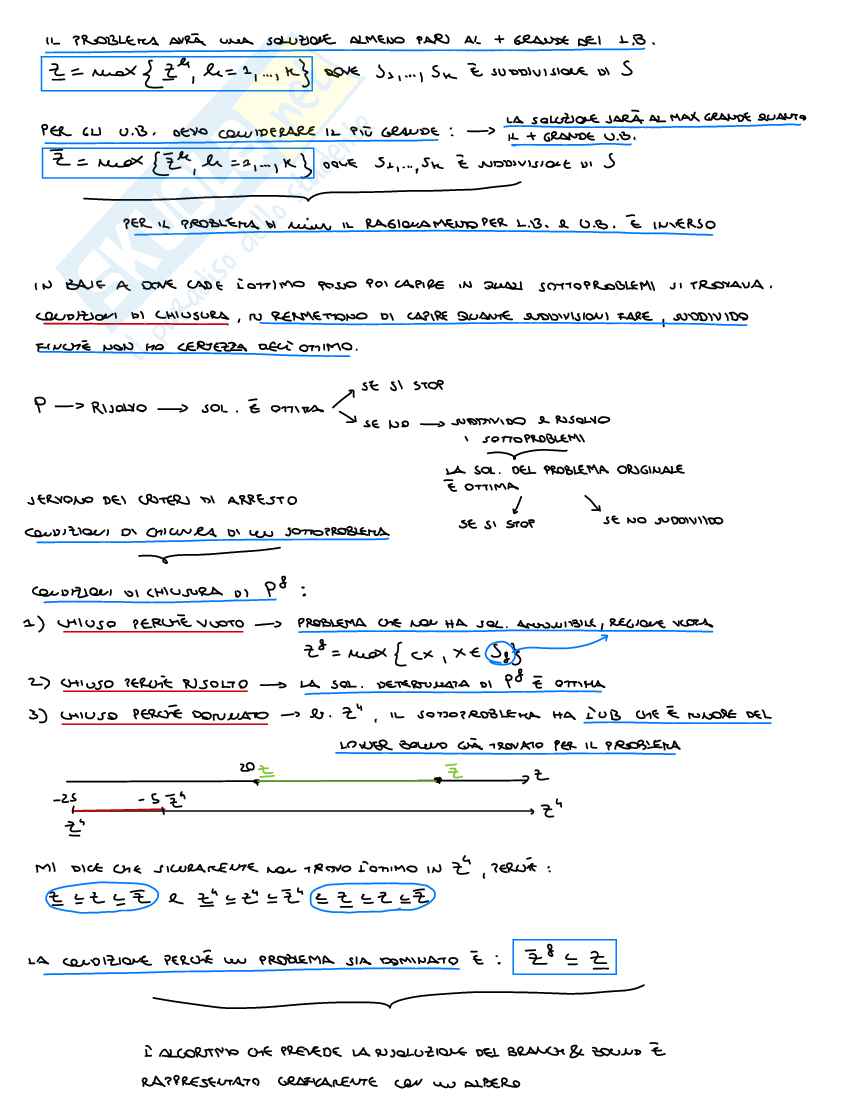 IL PROBLEMA AVRÀ UNA SOLUZIONE ALMENO PARI AL + GRANDE DEI L.B.
z̲ = max { z̲ʰ, h = 1, ..., k } DOVE S₁, ..., Sₖ È SUDDIVISIONE DI S
PER GLI U.B. DEVO CONSIDERARE IL PIÙ GRANDE : → LA SOLUZIONE SARÀ AL MAX GRANDE QUANTO
IL + GRANDE U.B.
z̅ = max { z̅ʰ, h = 1, ..., k } DOVE S₁, ..., Sₖ È SUDDIVISIONE DI S
PER IL PROBLEMA DI min IL RAGIONAMENTO PER L.B. e U.B. È INVERSO
IN BASE A DOVE CADE L'OTTIMO POSSO POI CAPIRE IN QUALI SOTTOPROBLEMI SI TROVAVA.
CONDIZIONI DI CHIUSURA, CI PERMETTONO DI CAPIRE QUANTE SUDDIVISIONI FARE, SUDDIVIDO
FINCHÈ NON HO CERTEZZA DELL'OTTIMO.
P → RISOLVO → SOL. È OTTIMA
SE SI STOP
SE NO → SUDDIVIDO e RISOLVO
I SOTTOPROBLEMI
LA SOL. DEL PROBLEMA ORIGINALE
È OTTIMA
SE SI STOP
SE NO SUDDIVIDO
SERVONO DEI CRITERI DI ARRESTO
CONDIZIONI DI CHIUSURA DI UN SOTTOPROBLEMA
CONDIZIONI DI CHIUSURA DI P⁸ :
1) CHIUSO PERCHÈ VUOTO → PROBLEMA CHE NON HA SOL. AMMISSIBILE, REGIONE VUOTA
z⁸ = max { cx, x ∈ S₈ }
2) CHIUSO PERCHÈ RISOLTO → LA SOL. DETERMINATA DI P⁸ È OTTIMA
3) CHIUSO PERCHÈ DOMINATO → es. z⁴, IL SOTTOPROBLEMA HA L'UB CHE È MINORE DEL
LOWER BOUND GIÀ TROVATO PER IL PROBLEMA
20 z̲ z̅ z
-25 -5 z̅⁴ z⁴
z̲⁴
MI DICE CHE SICURAMENTE NON TROVO L'OTTIMO IN z⁴, PERCHÈ :
z̲ ≤ z ≤ z̅ e z̲⁴ ≤ z⁴ ≤ z̅⁴ ≤ z̲ ≤ z ≤ z̅
LA CONDIZIONE PERCHÈ UN PROBLEMA SIA DOMINATO È : z̅⁸ ≤ z̲
L'ALGORITMO CHE PREVEDE LA RISOLUZIONE DEL BRANCH & BOUND È
RAPPRESENTATO GRAFICAMENTE CON UN ALBERO
SKUOLA.net
il paradiso dello studente